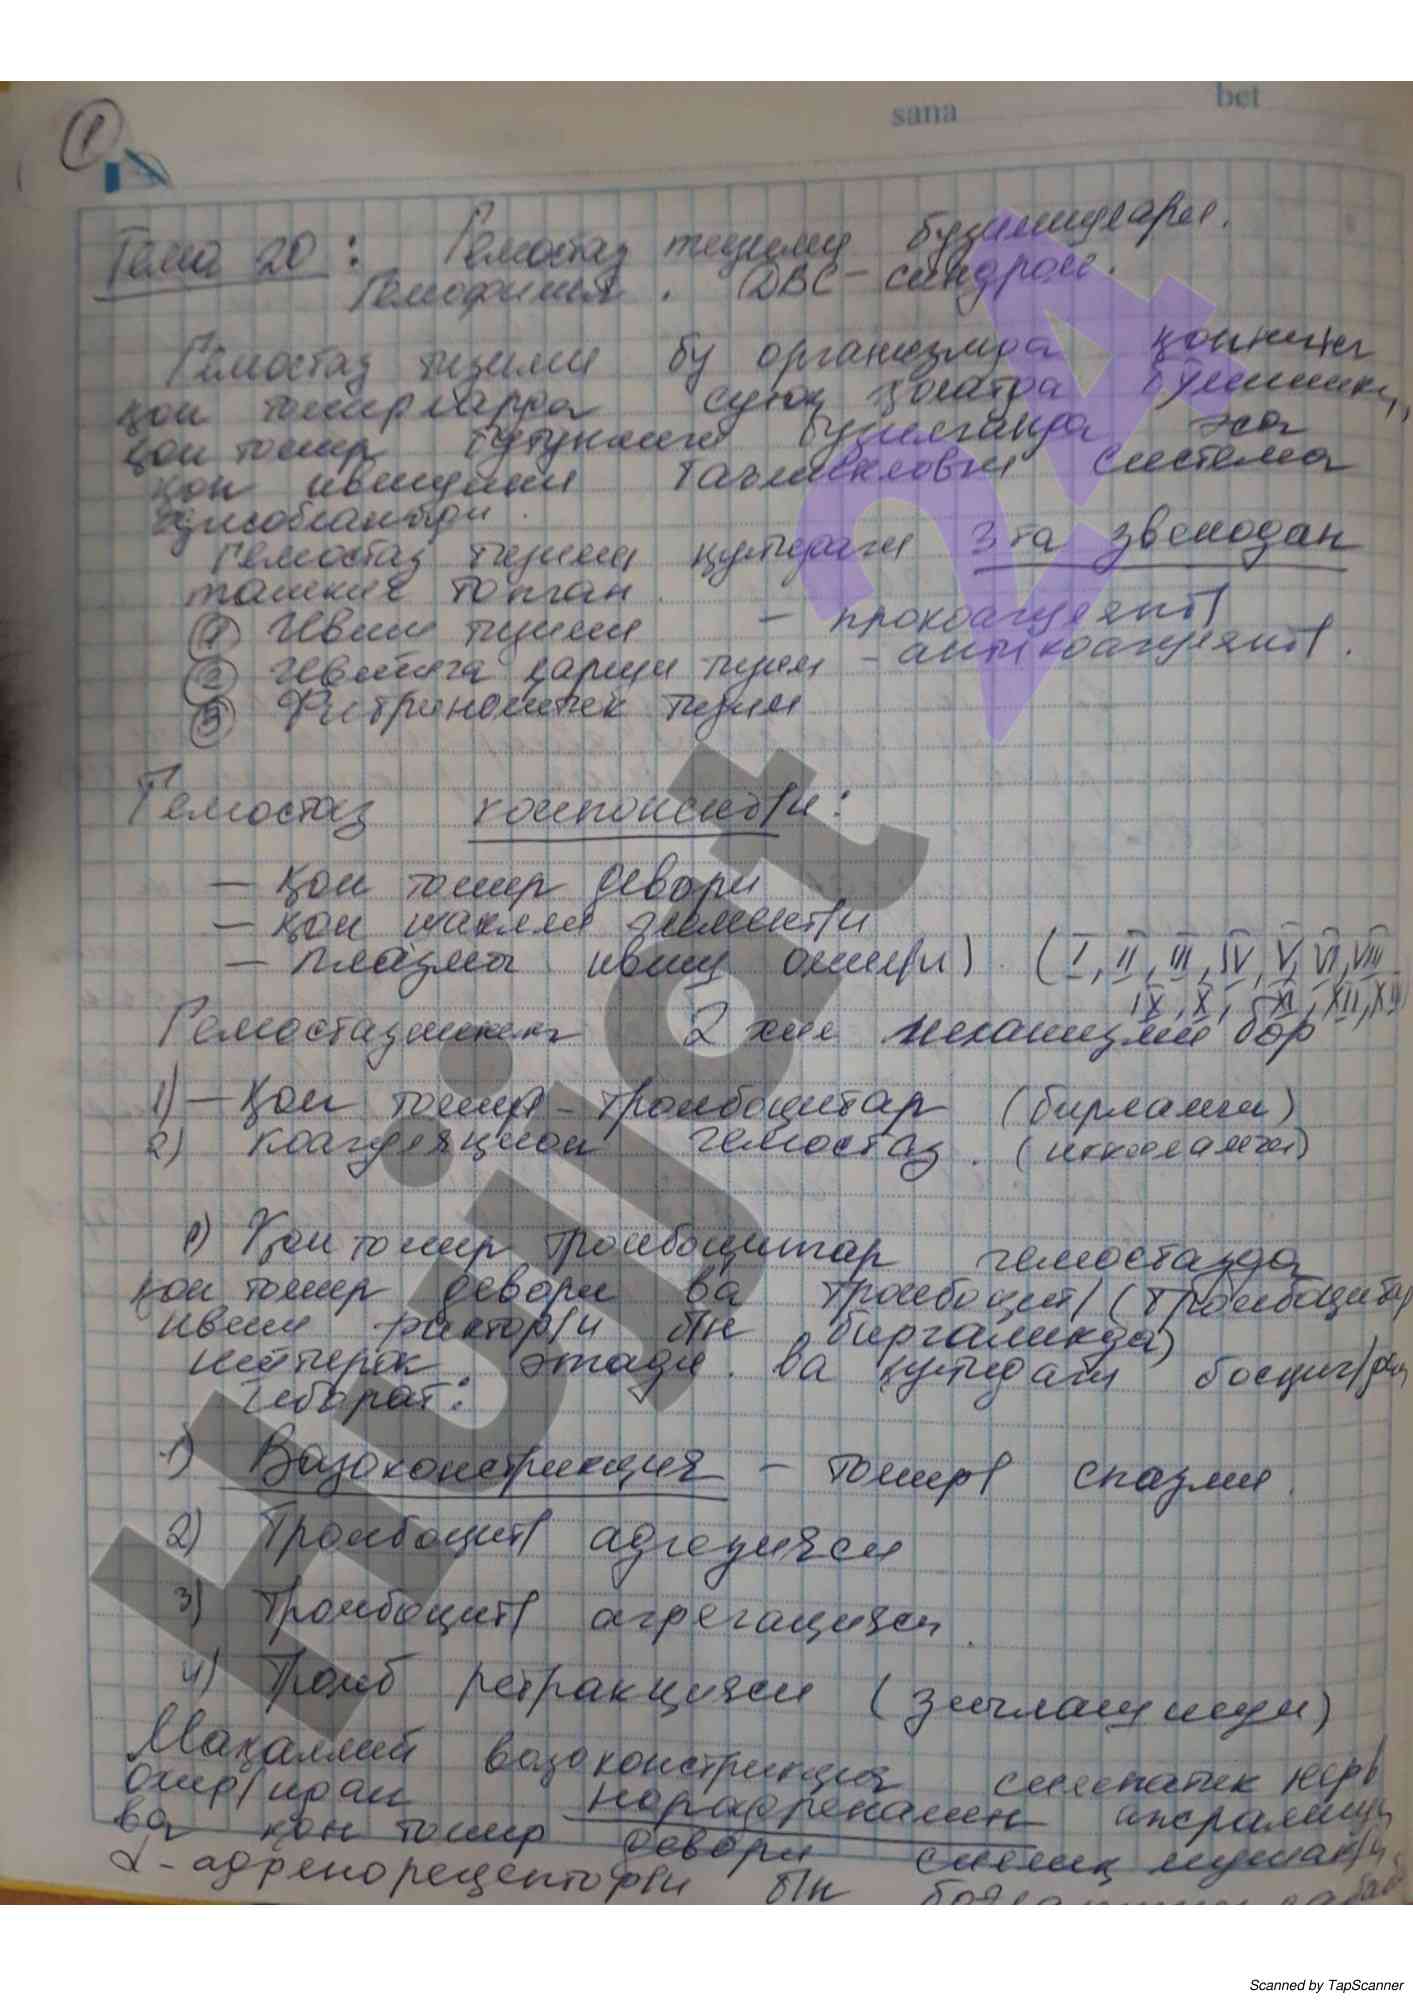 sana bet
1
Тема 20: Гемостаз тизими бузилишлари.
Гемофилия. ДВС-синдром.
Гемостаз тизими бу организмда қоннинг
қон томирларда суюқ ҳолатда бўлишини,
қон томир бутунлиги бузилганда эса
қон ивишини таъминловчи система
ҳисобланади.
Гемостаз тизими қуйидаги 3 та звенодан
ташкил топган
① Ивиш тизими - прокоагулянт/
② Ивишга қарши тизим - антикоагулянт/.
③ Фибринолитик тизим
Гемостаз компонент/и:
- Қон томир девори
- Қон шаклли элемент/и
- Плазма ивиш омил/и). (I, II, III, IV, V, VI, VIII
IX, X, XI, XII, XIII)
Гемостазнинг 2 хил механизми бор
1) - Қон томир - тромбоцитар (бирламчи)
2) Коагуляцион гемостаз. (иккиламчи)
1) Қон томир тромбоцитар гемостазда
қон томир девори ва тромбоцит/ (тромбоцитар
ивиш фактор/и б/н биргаликда)
иштирок этади. ва қуйидаги босқич/дан
Иборат:
1) Вазоконстрикция - томир/ спазми.
2) Тромбоцит/ адгезияси
3) Тромбоцит/ агрегацияси.
4) Тромб ретракцияси (зичлашиши)
Маҳаллий вазоконстрикция симпатик нерв
охир/идан норадреналин ажралиши
ва қон томир девори силлиқ мушак/и
α-адренорецептор/и б/н
Hujjat 24
Scanned by TapScanner